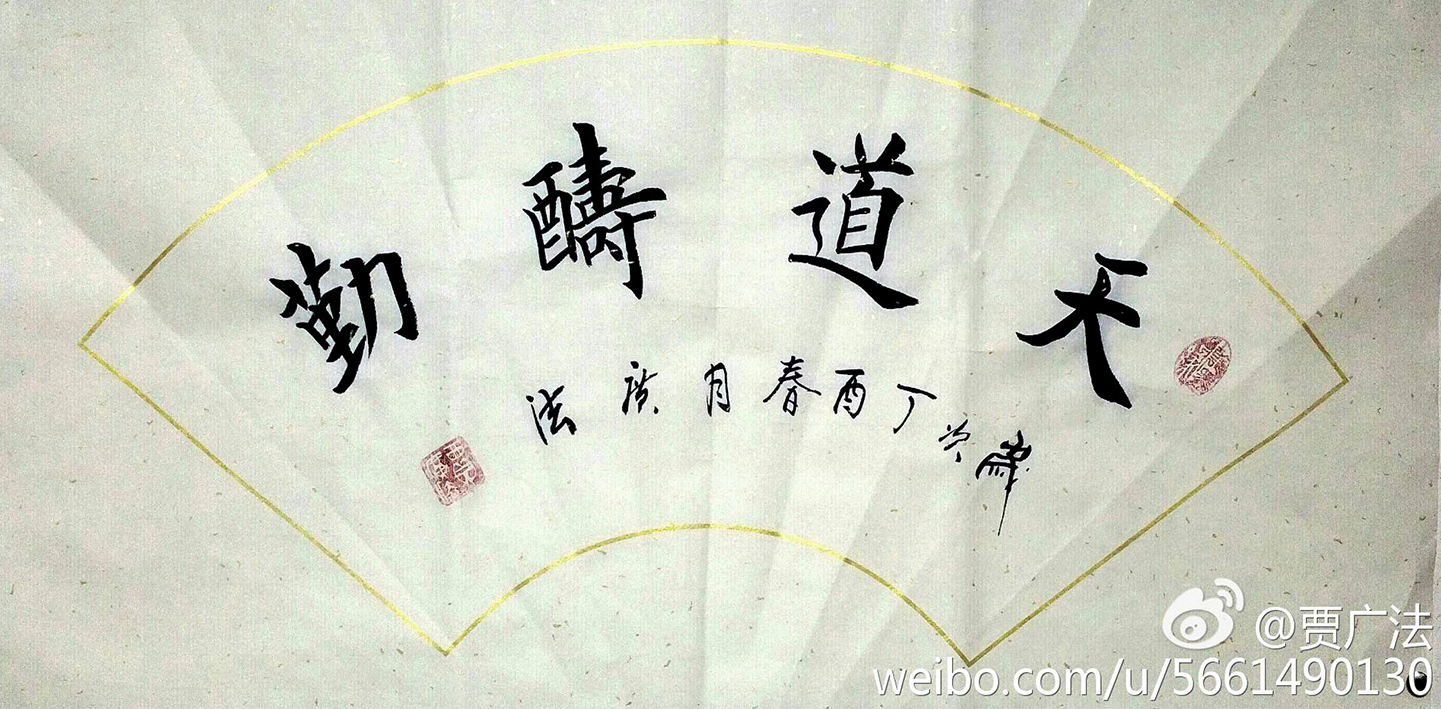 天道醻勤
歲次丁酉春月廣法
@贾广法
weibo.com/u/5661490130